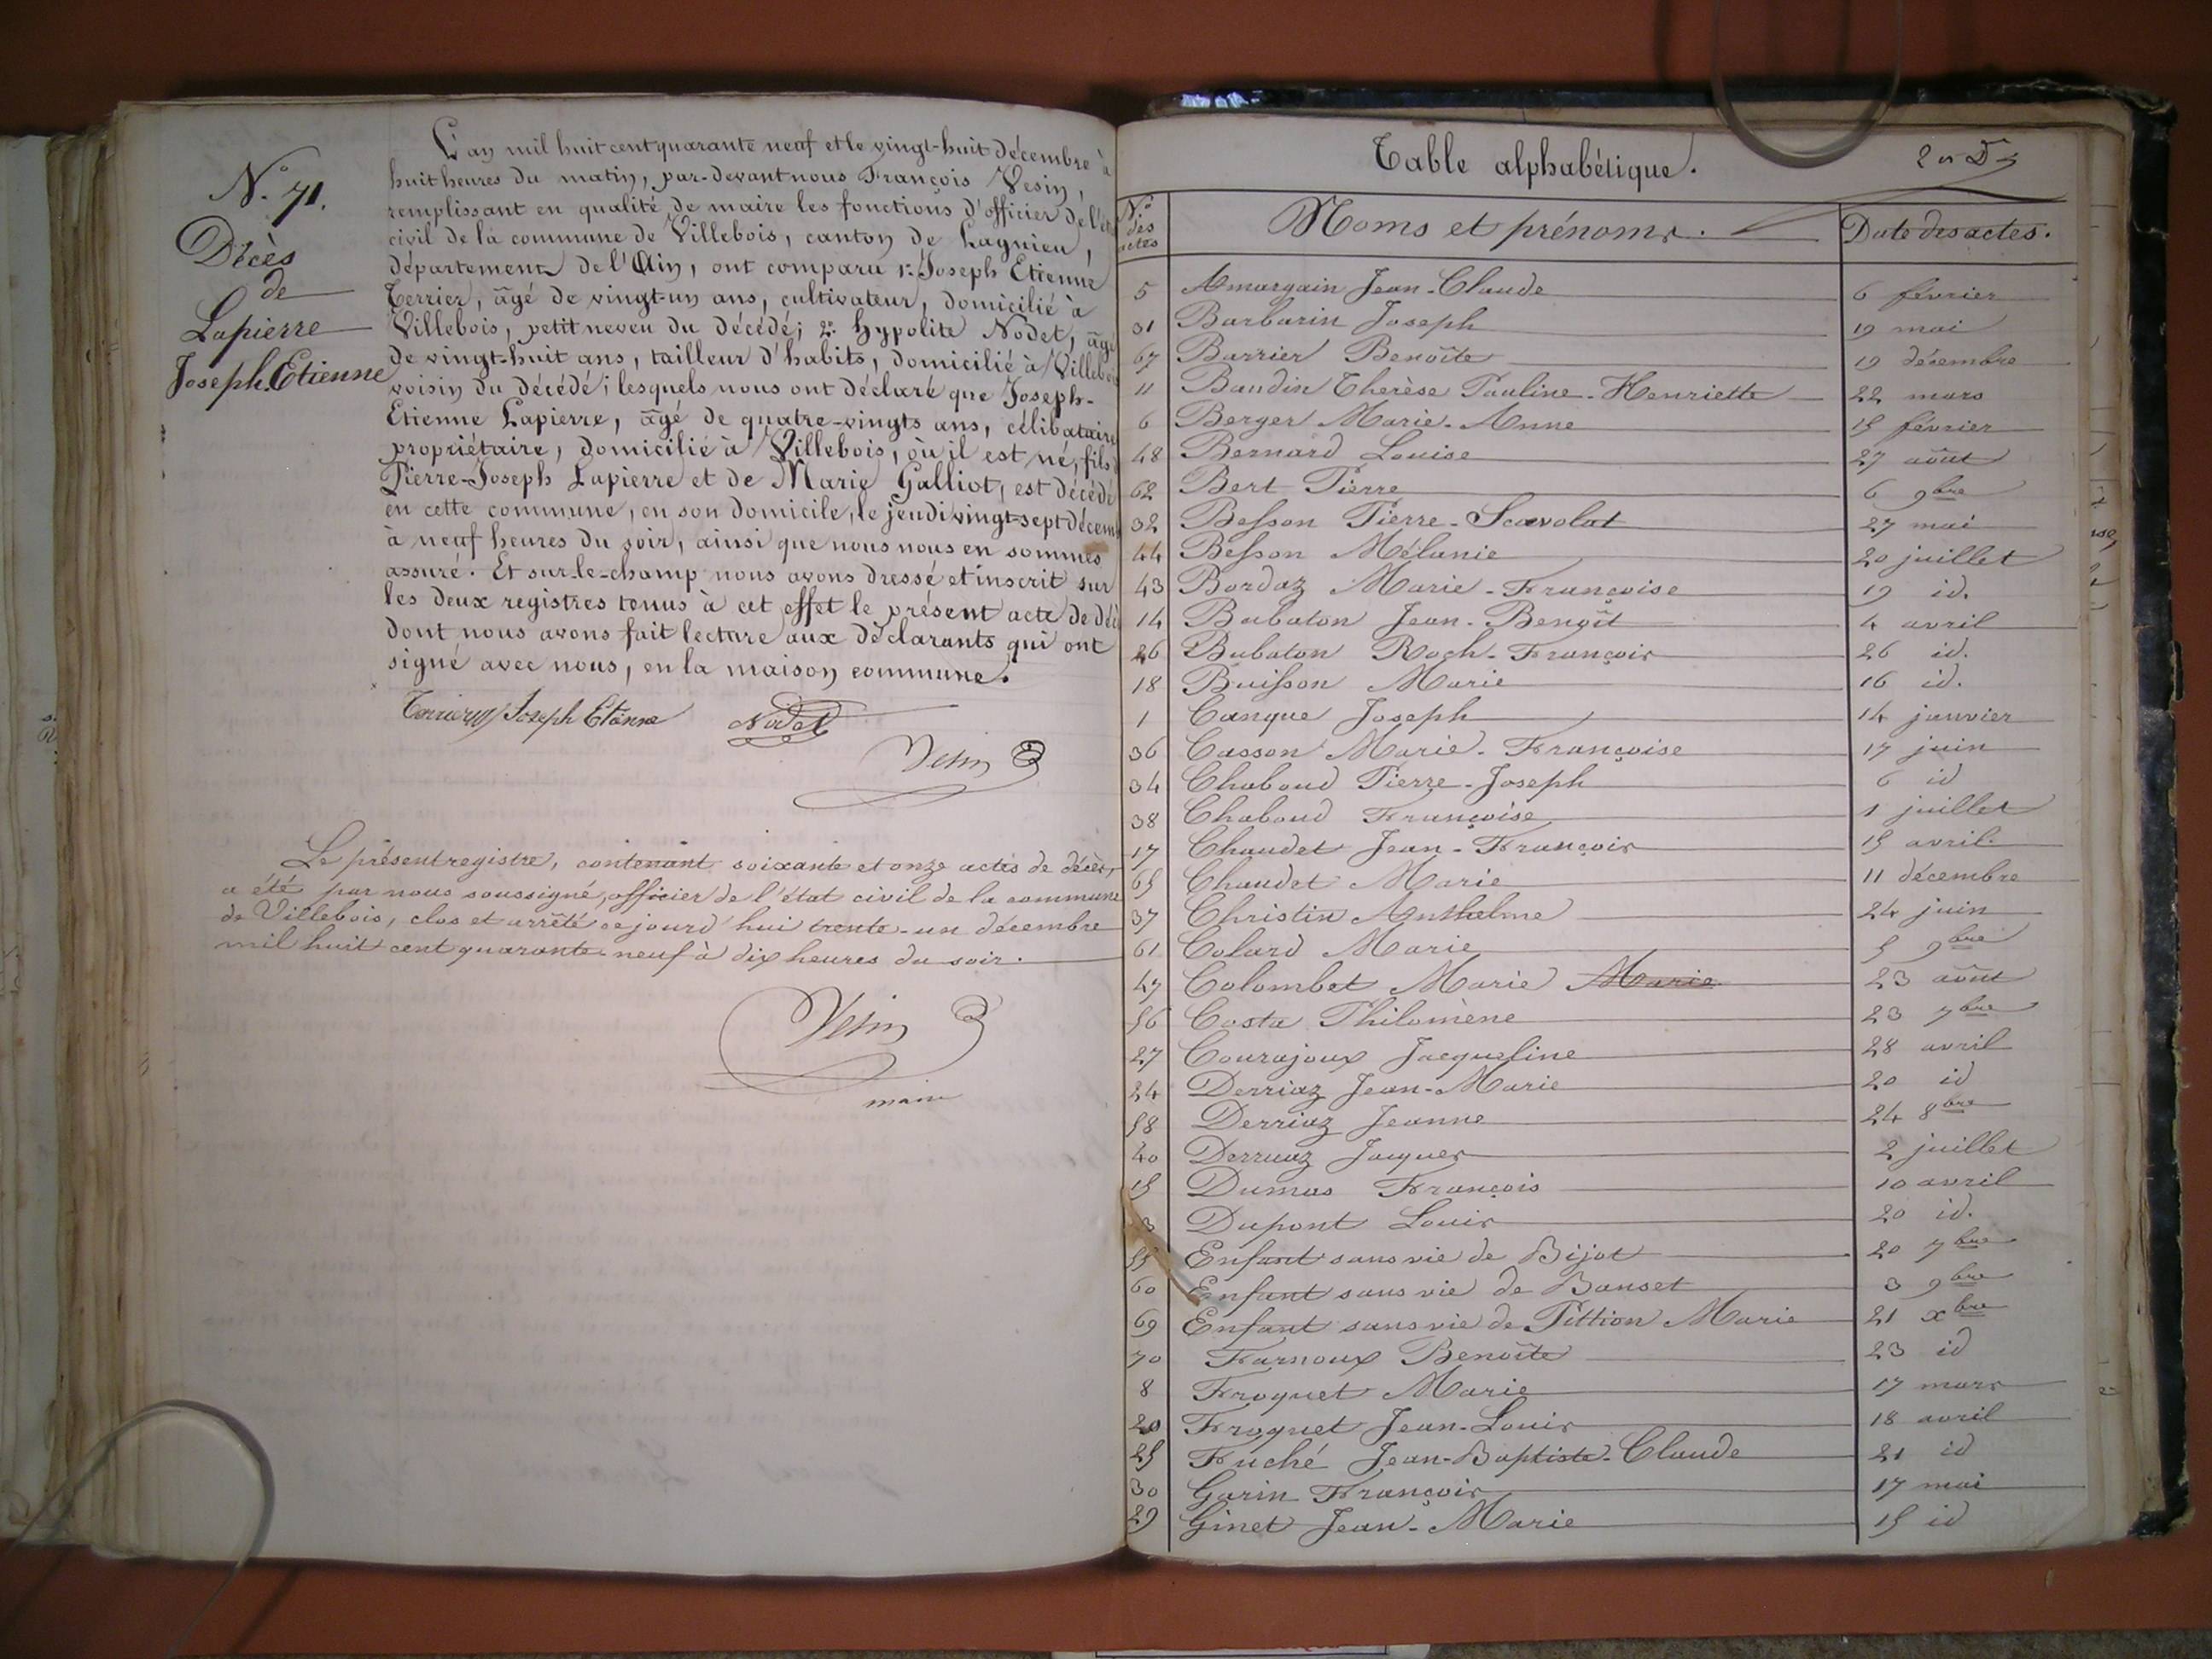 N.º 71.
Décès
de
Lapierre
Joseph-Etienne
L'an mil huit cent quarante neuf et le vingt-huit décembre à
huit heures du matin, par-devant nous François Vesin,
remplissant en qualité de maire les fonctions d'officier de l'état
civil de la commune de Villebois, canton de Lagnieu,
département de l'Ain, ont comparu 1º. Joseph Etienne
Terrier, âgé de vingt-un ans, cultivateur, domicilié à
Villebois, petit neveu du décédé; 2º. Hypolite Nodet, âgé
de vingt-huit ans, tailleur d'habits, domicilié à Villebois
voisin du décédé; lesquels nous ont déclaré que Joseph-
Etienne Lapierre, âgé de quatre-vingts ans, célibataire
propriétaire, domicilié à Villebois, où il est né, fils
Pierre-Joseph Lapierre et de Marie Galliot, est décédé
en cette commune, en son domicile, le jeudi vingt-sept décem
à neuf heures du soir, ainsi que nous nous en sommes
assuré. Et sur-le-champ nous avons dressé et inscrit sur
les deux registres tenus à cet effet le présent acte de déc
dont nous avons fait lecture aux déclarants qui ont
signé avec nous, en la maison commune.
Terrier Joseph Etienne Nodet
Vesin
Le présent registre, contenant soixante et onze actes de décès,
a été par nous soussigné, officier de l'état civil de la commune
de Villebois, clos et arrêté ce jourd'hui trente-un décembre
mil huit cent quarante-neuf à dix heures du soir.
Vesin
maire
Table alphabétique.
N.º des actes Noms et prénoms. Date des actes.
5 Amargain Jean-Claude 6 février
31 Barbarin Joseph 19 mai
67 Barrier Benoîte 19 décembre
11 Baudin Therèse Pauline-Henriette 22 mars
6 Berger Marie-Anne 15 février
48 Bernard Louise 27 août
62 Bert Pierre 6 9bre
32 Besson Pierre-Scavolat 27 mai
44 Besson Mélanie 20 juillet
43 Bordaz Marie-Françoise 19 id.
14 Bubaton Jean-Benoît 4 avril
26 Bubaton Roch-François 26 id.
18 Buisson Marie 16 id.
1 Canque Joseph 14 janvier
36 Casson Marie-Françoise 17 juin
34 Chaboud Pierre-Joseph 6 id
38 Chaboud Françoise 1 juillet
17 Chaudet Jean-François 15 avril.
65 Chaudet Marie 11 décembre
37 Christin Anthelme 24 juin
61 Colard Marie 5 9bre
47 Colombet Marie Marie 23 août
56 Costa Philomène 23 7bre
27 Courajoux Jacqueline 28 avril
24 Derriaz Jean-Marie 20 id
58 Derriaz Jeanne 24 8bre
40 Derruaz Jacques 2 juillet
15 Dumas François 10 avril
3 Dupont Louis 20 id.
55 Enfant sans vie de Bijot 20 7bre
60 Enfant sans vie de Banset 3 9bre
69 Enfant sans vie de Pittion Marie 21 xbre
70 Farnoux Benoîte 23 id
8 Froquet Marie 17 mars
20 Froquet Jean-Louis 18 avril
25 Fuché Jean-Baptiste-Claude 21 id
30 Garin François 17 mai
29 Ginet Jean-Marie 15 id